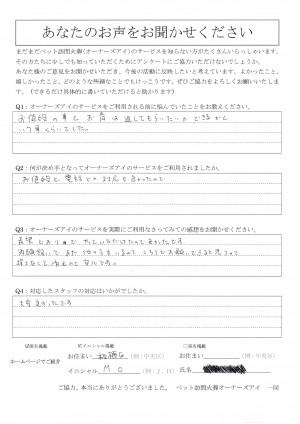 あなたのお声をお聞かせください
まだまだペット訪問火葬(オーナーズアイ)のサービスを知らない方がたくさんいらっしゃいます。
その方たちに少しでも知っていただくためにアンケートにご協力いただけないでしょうか。
あなた様のご意見をお聞かせいただき、今後の活動に反映したいと考えています。よかったこと、
嬉しかったこと、どのような些細なことでもけっこうです。ぜひご協力をよろしくお願いいたします。
(できるだけ具体的に書いていただけると助かります)
Q1:オーナーズアイのサービスをご利用される前に悩んでいたことをお教えください。
お値段の事と お骨は返してもらいたいができるか
Q2:何が決め手となってオーナーズアイのサービスをご利用されましたか。
お値段と電話での対応も良かったので
Q3:オーナーズアイのサービスを実際にご利用なさってみての感想をお聞かせください。
希望どおりの
Q4:対応したスタッフの対応はいかがでしたか。
大変良かったです
ホームページでご紹介
イニシャル掲載
お住まい 板橋区 (例:中央区)
イニシャル M.O (例:J.H)
お住まい (例:中央区)
氏名
ご協力、本当にありがとうございました。 ペット訪問火葬オーナーズアイ 一同